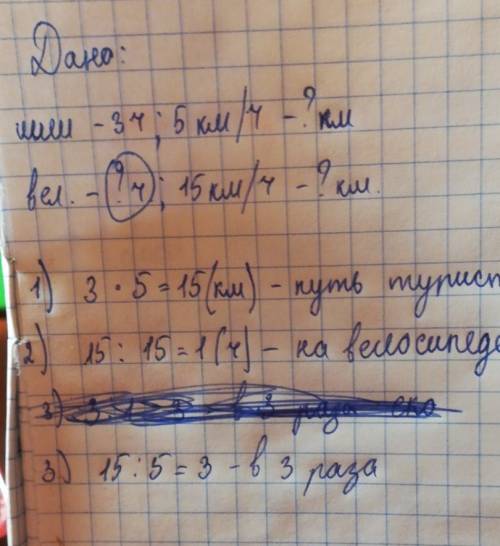 Дано:
3ч; 5 км/ч - ? км
вел. - ? ч; 15 км/ч - ? км.
1) 3 · 5 = 15 (км) - путь турист
2) 15 : 15 = 1 (ч) - на велосипеде
3) в 3 раза
3) 15 : 5 = 3 - в 3 раза